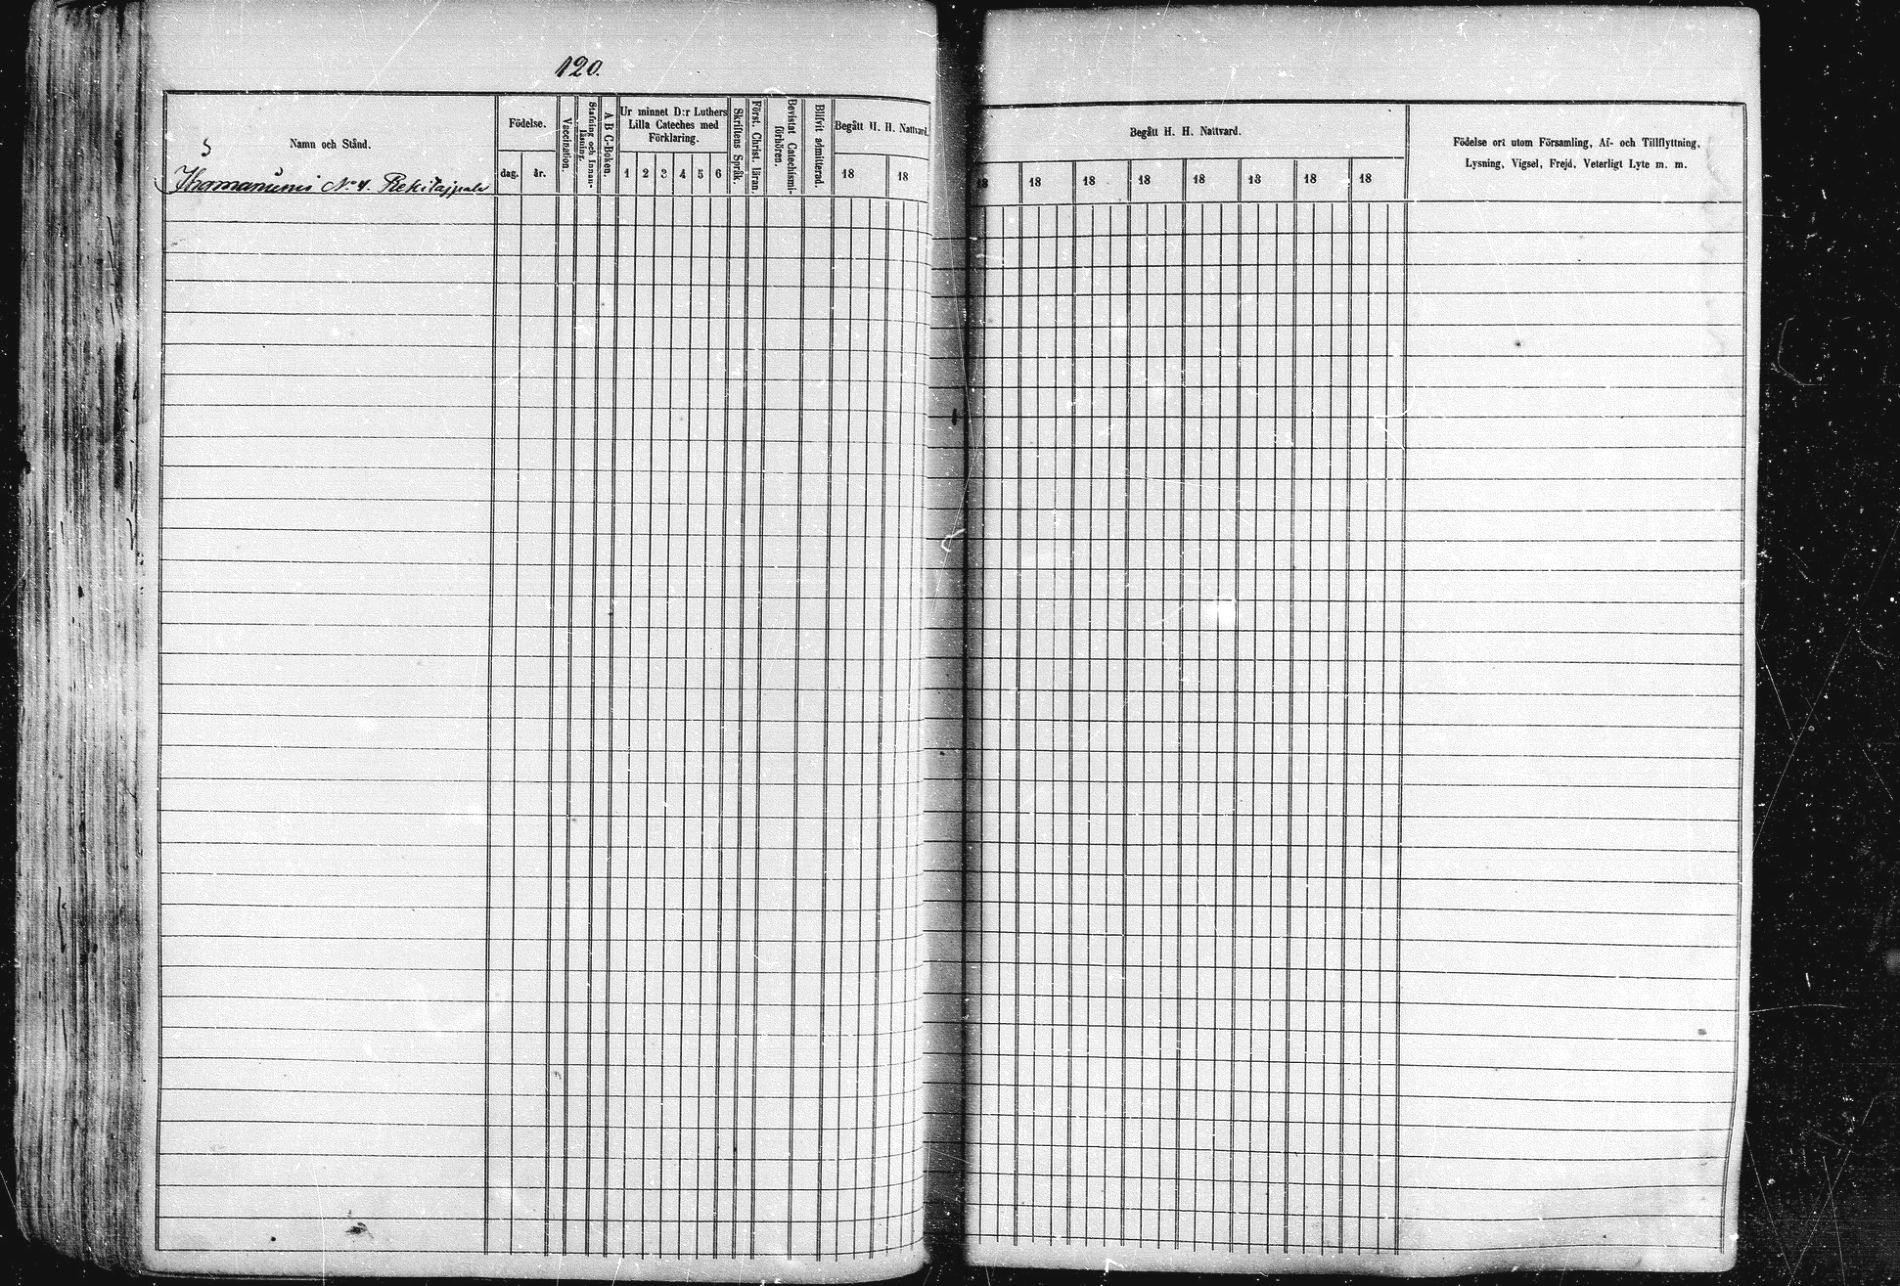 120.
Namn och Stånd.
Födelse.
dag.
år.
Vaccination.
Stafning och Innan-
läsning.
A B C-Boken.
Ur minnet D:r Luthers
Lilla Cateches med
Förklaring.
1 2 3 4 5 6
Skriftens Språk.
Först. Christ. läran.
Bevistat Catechismi-
förhören.
Blifvit admitterad.
Begått H. H. Nattvard.
18 18
5
N:o 4.
Begått H. H. Nattvard.
18 18 18 18 18 18 18 18
Födelse ort utom Församling, Af- och Tillflyttning,
Lysning, Vigsel, Frejd, Veterligt Lyte m. m.